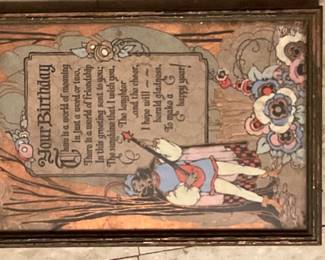 Your Birthday
There is a world of meaning
In just a word or two,
There is a world of friendship
In this greeting sent to you;
The sunshine that I wish you,
The laughter
and the cheer,
I hope will
herald gladness,
To make a
happy year!